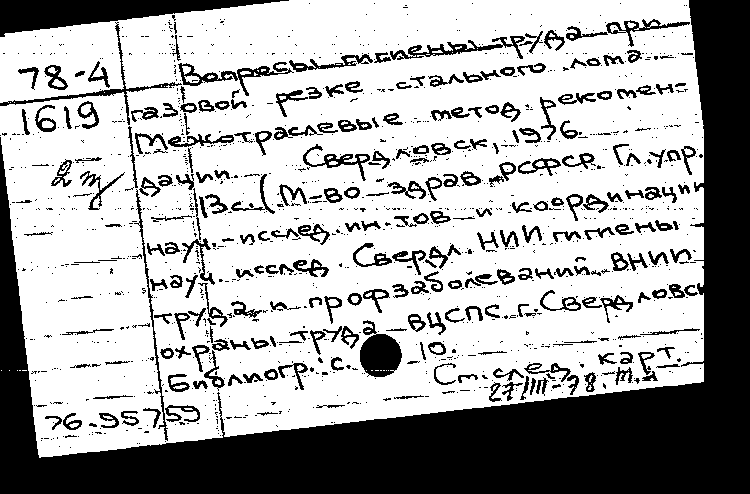 78-4
1619
2 т/
Вопросы гигиены труда при
газовой резке стального лома.
Межотраслевые метод. рекомен-
дации. Свердловск, 1976.
13 с. (М-во здрав. РСФСР. Гл. упр.
науч.-исслед. ин.тов и координации
науч. исслед. Свердл. НИИ гигиены
труда и профзаболеваний. ВНИИ
охраны труда ВЦСПС г. Свердловск
Библиогр.: с. 10.
Ст. след. карт.
27/III-78.
76.95759